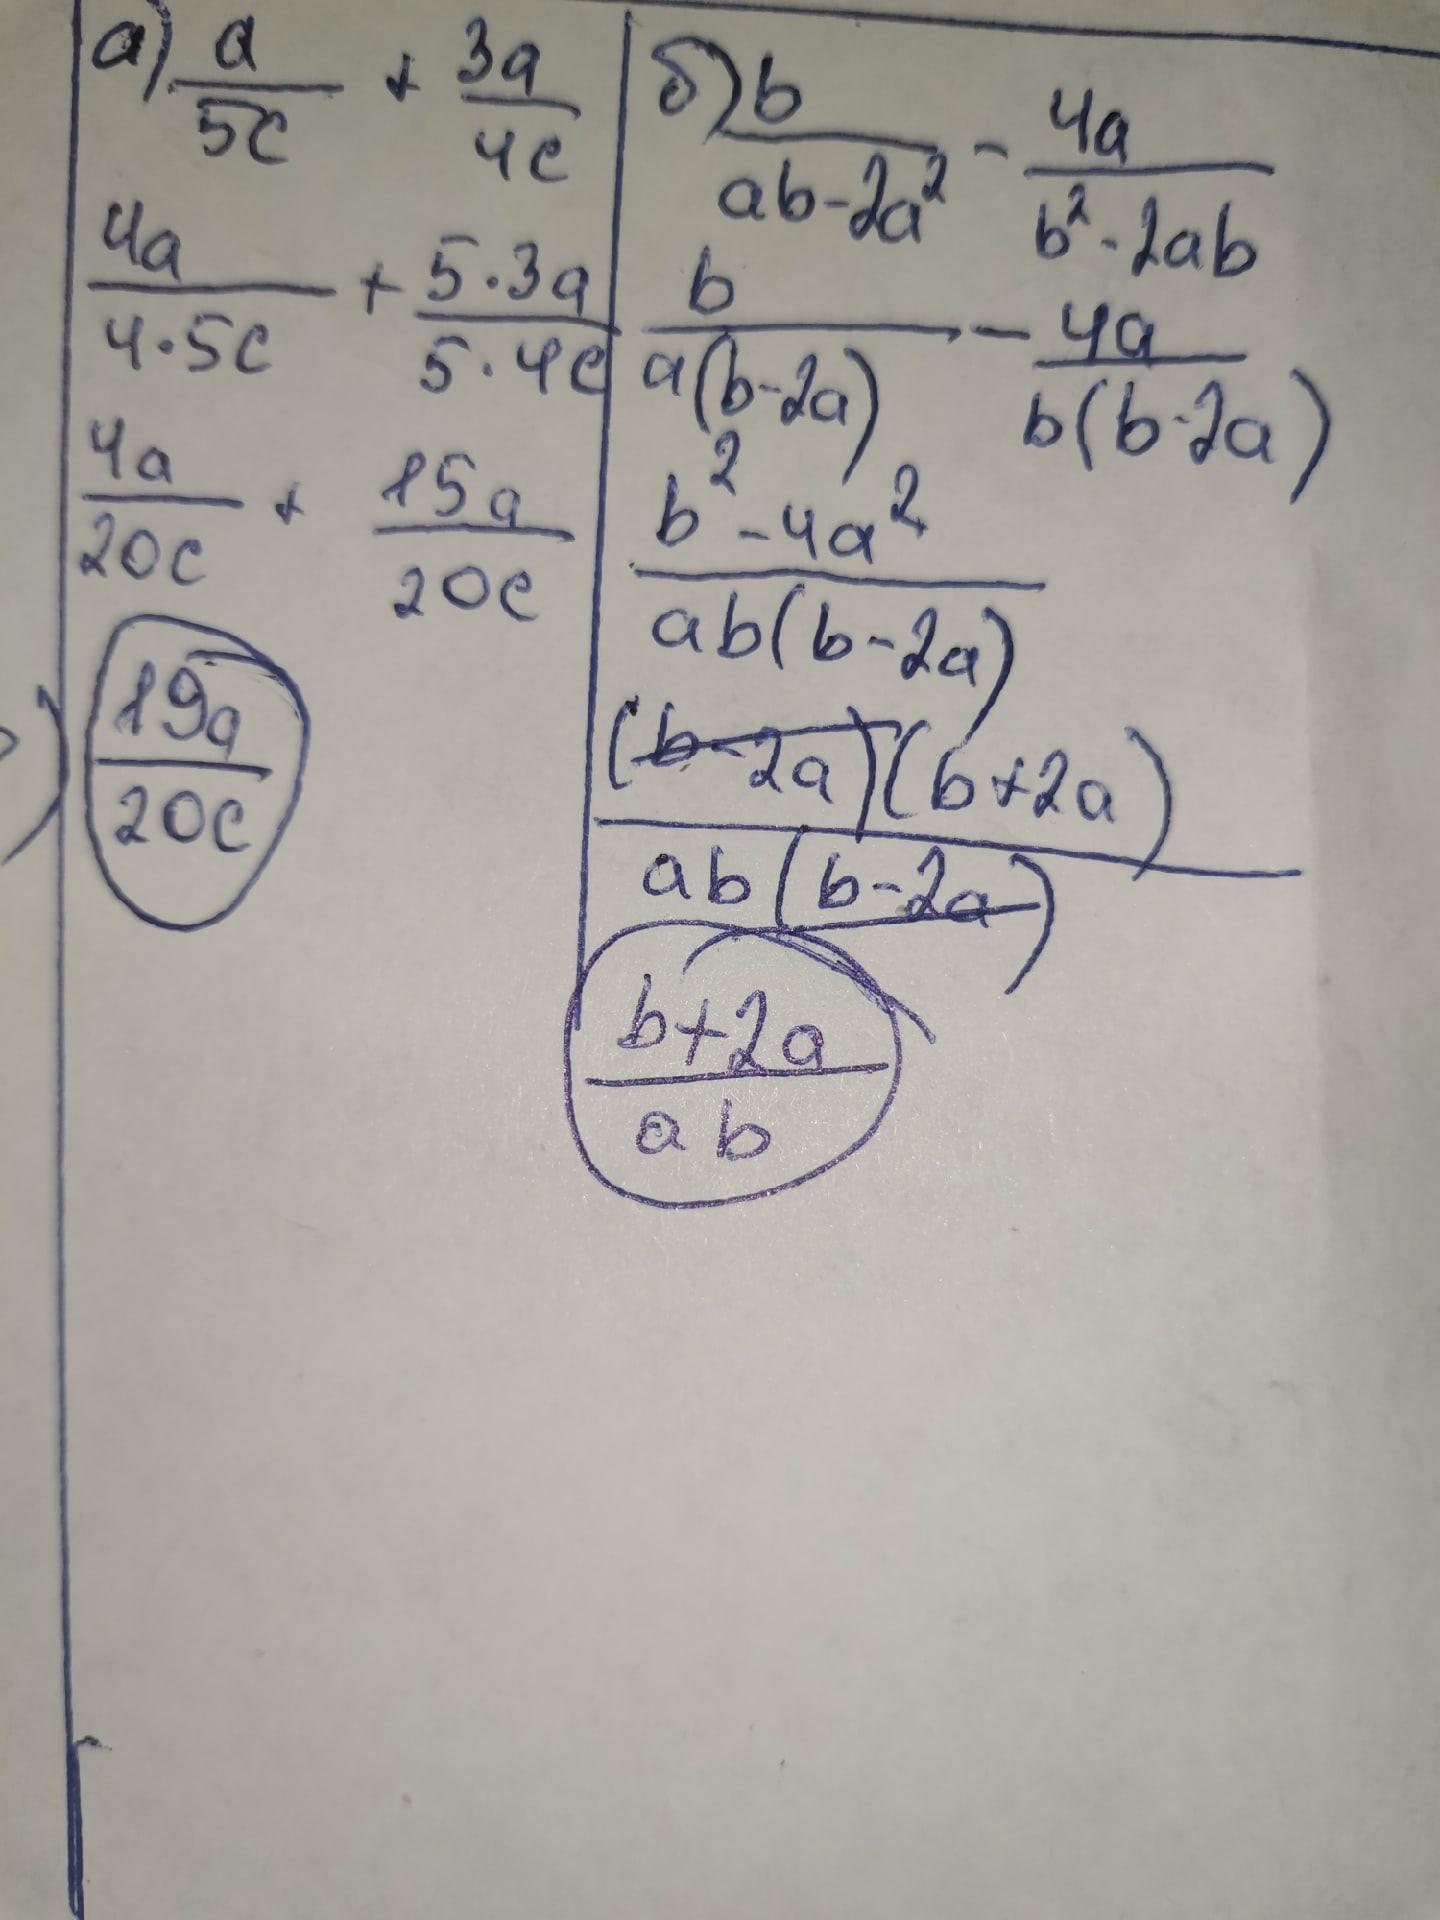 а) a/5c + 3a/4c
4a/4·5c + 5·3a/5·4c
4a/20c + 15a/20c
19a/20c
б) b/ab-2a² - 4a/b²-2ab
b/a(b-2a) - 4a/b(b-2a)
b²-4a²/ab(b-2a)
(b-2a)(b+2a)/ab(b-2a)
b+2a/ab